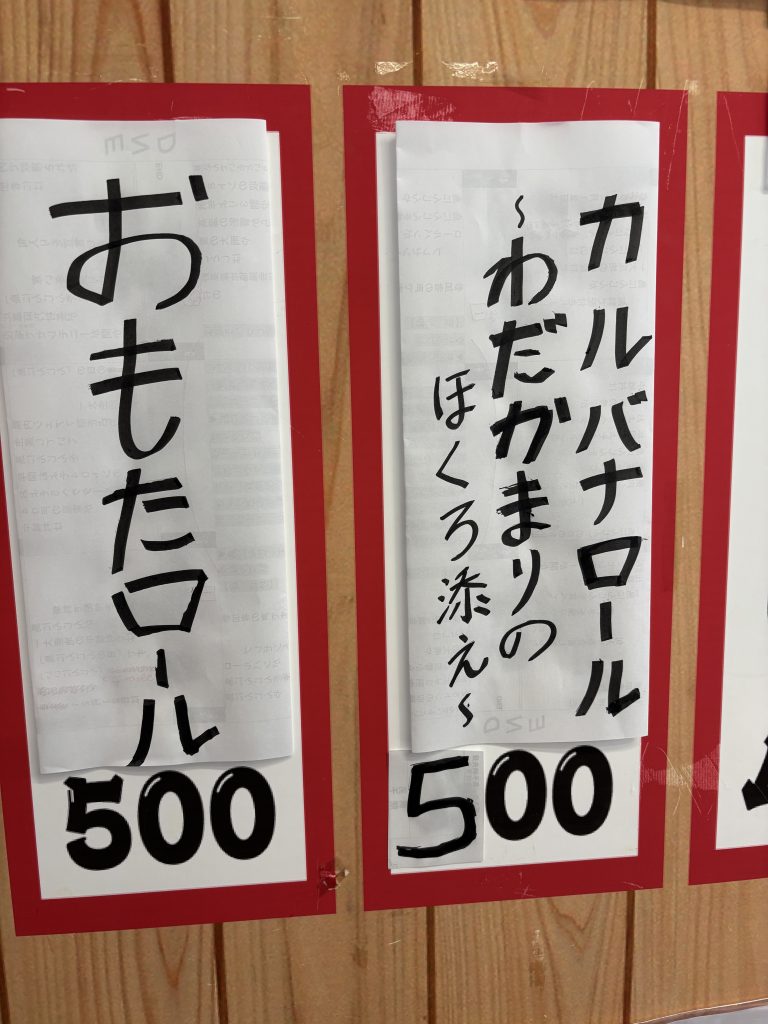 カルバナロール
～わだかまりの
ほくろ添え～
500
おもたロール
500